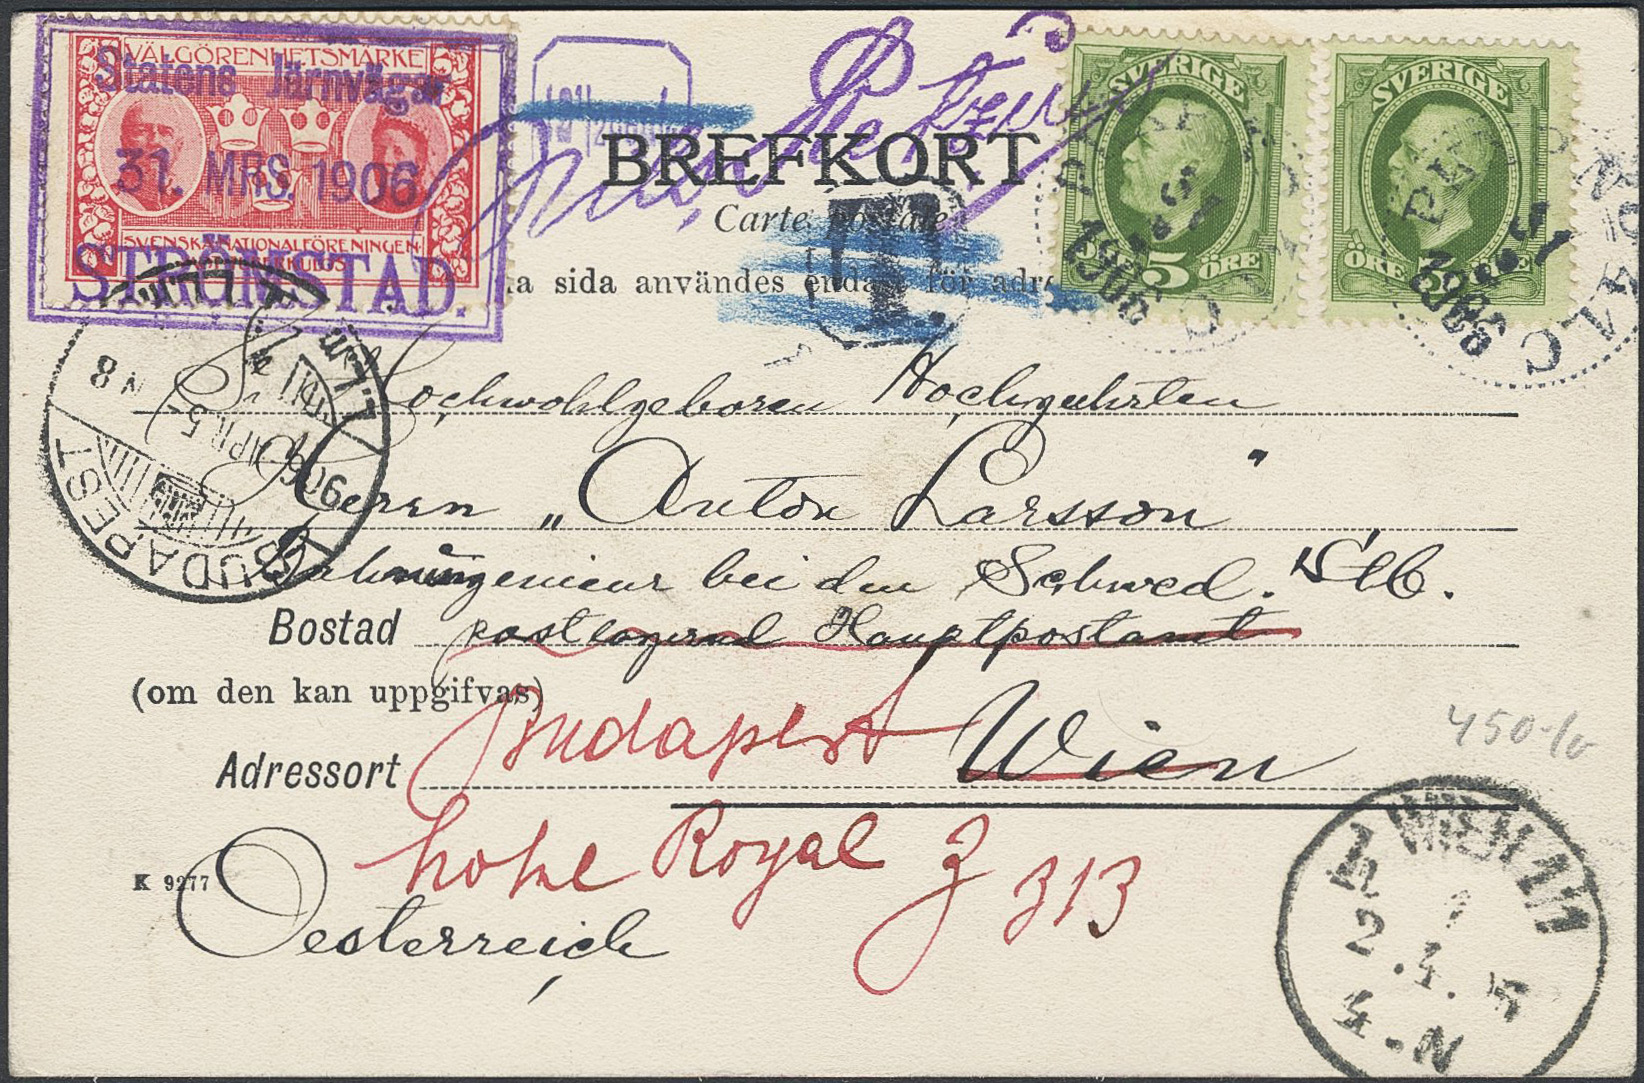 VÄLGÖRENHETSMÄRKE
Statens Järnvägar
31. MRS. 1906
SVENSKA NATIONALFÖRENINGEN
STRÖMSTAD.
BREFKORT
Carte postale
T.
SVERIGE
5 ÖRE
SVERIGE
ÖRE 5 ÖRE
31 3
1906
31 3
1906
a sida användes endast för adre
Hochwohlgeboren Hochgeehrten
Herrn „Anton Larsson"
Bahningenieur bei den Schwed.
Bostad postlagernd Hauptpostamt
(om den kan uppgifvas)
Budapest
Adressort Wien
hotel Royal Z 313
K 9277
Oesterreich
BUDAPEST
906 APR 5
N 8
450-
WIEN